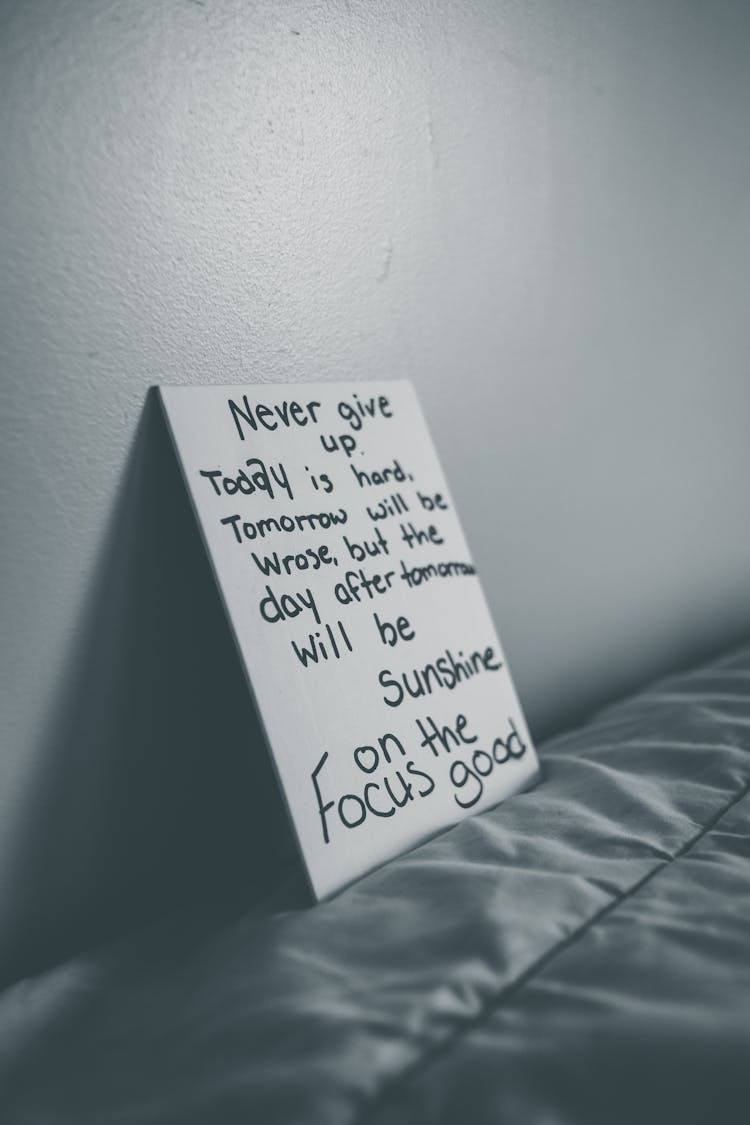 Never give
up.
Today is hard,
Tomorrow will be
Wrose, but the
day after tomorrow
will be
sunshine
on the
Focus good